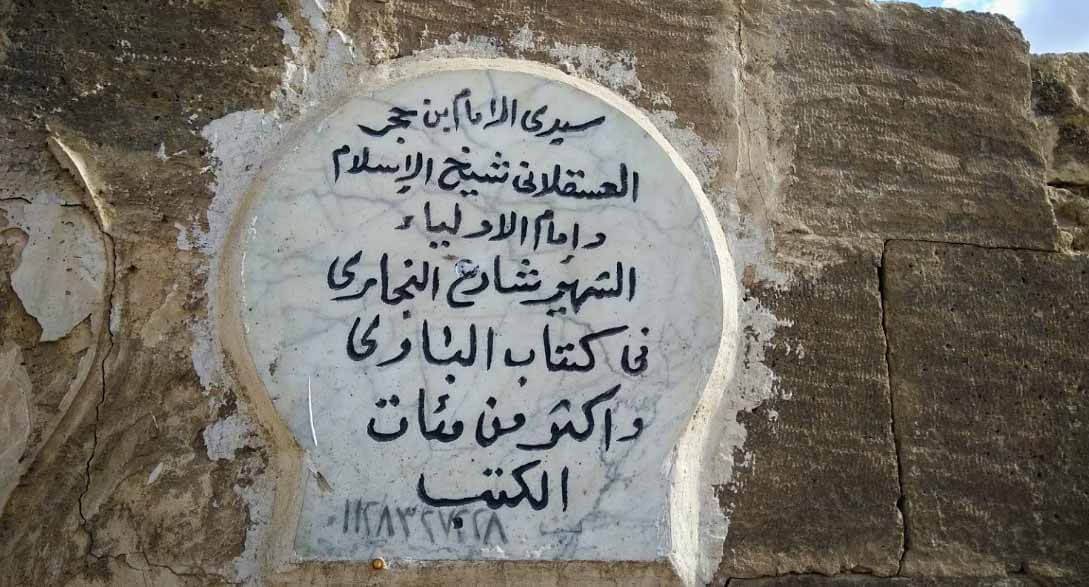 سيدى الامام بن حجر
العسقلانى شيخ الإسلام
وإمام الاولياء
الشهير شارح البخارى
فى كتاب البارى
واكثر من مئات
الكتب